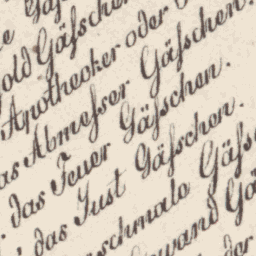 old Gäſschen
Apothecker oder
as Abmeſser Gäſschen.
das Feuer Gäſschen.
das Just Gäſschen.
schmale Gäſs
wand Gä
der